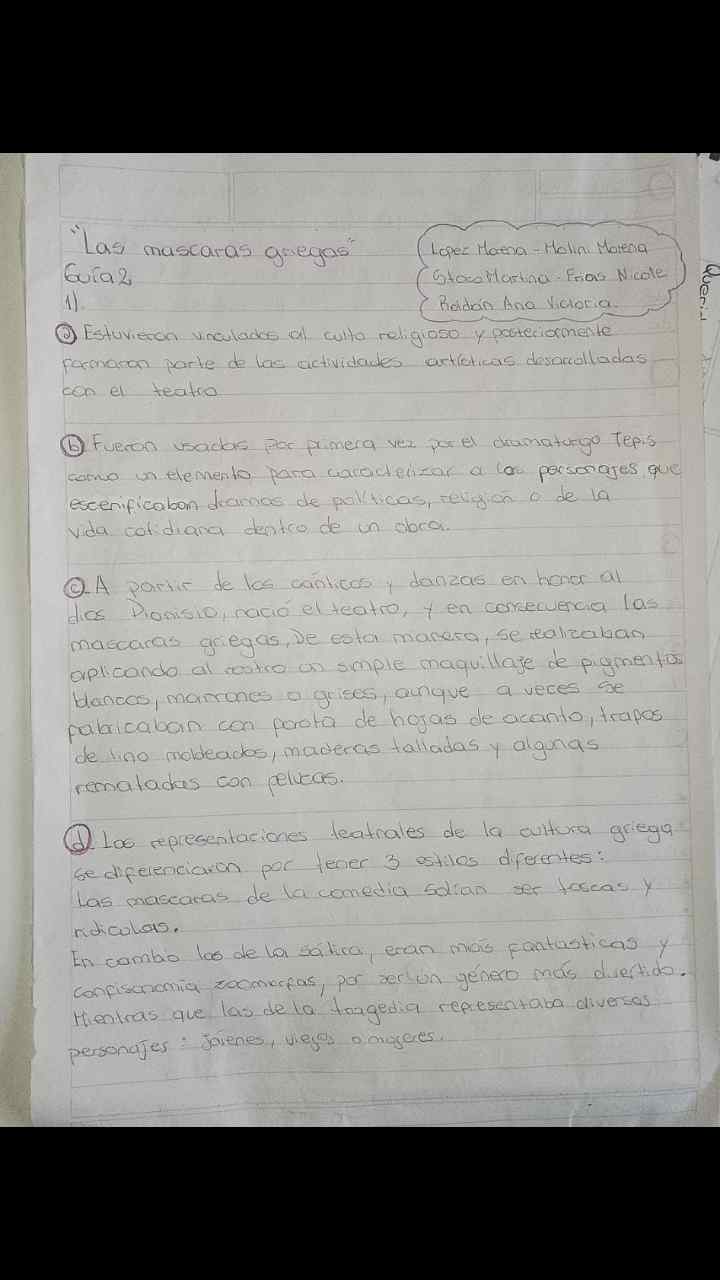 "Las mascaras griegas"
Guía 2
1).
Lopez Morena - Molini Morena
Stoco Martina - Frias Nicole
Roldán Ana Victoria.
a Estuvieron vinculados al culto religioso y posteriormente
formaron parte de las actividades artísticas desarrolladas
con el teatro
b Fueron usadas por primera vez por el dramaturgo Tepis
como un elemento para caracterizar a los personajes que
escenificaban dramas de políticas, religión o de la
vida cotidiana dentro de un obra.
c A partir de los cánticos y danzas en honor al
dios Dionisio, nació el teatro, y en consecuencia las
mascaras griegas, De esta manera, se realizaban
aplicando al rostro un simple maquillaje de pigmentos
blancos, marrones o grises, aunque a veces se
fabricaban con pasta de hojas de acanto, trapos
de lino moldeados, maderas talladas y algunas
rematadas con pelucas.
d Las representaciones teatrales de la cultura griega
se diferenciaron por tener 3 estilos diferentes:
Las mascaras de la comedia solían ser toscas y
ridiculas.
En cambio las de la sátira, eran más fantasticas y
con fisonomía zoomorfas, por ser un género más divertido.
Mientras que las de la tragedia representaba diversos
personajes: jóvenes, viejos o mujeres.